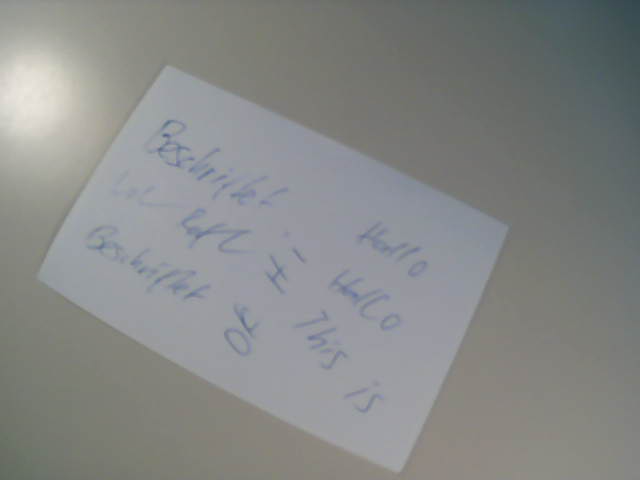 Beschriftet Hallo
Lol Hallo
Beschriftet This is